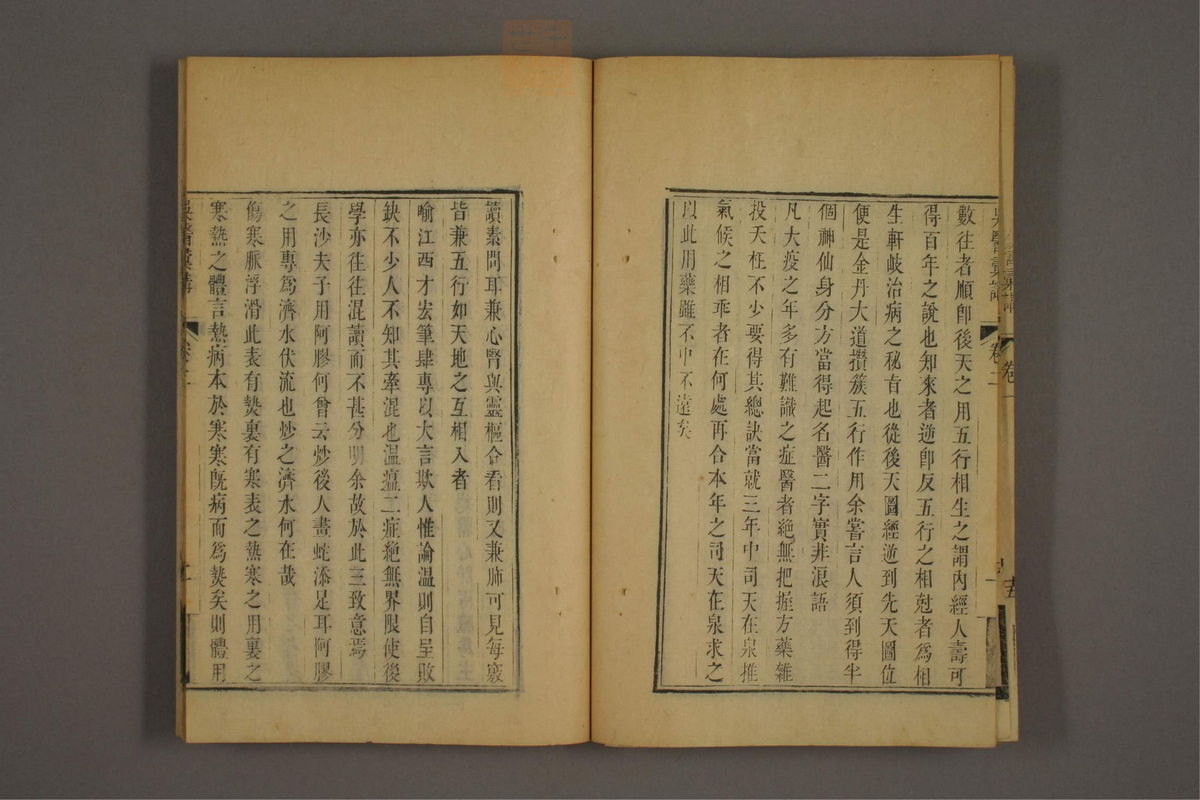 吳醫彙講
卷二
數往者順卽後天之用五行相生之謂內經人壽可
得百年之說也知來者逆卽反五行之相尅者爲相
生軒岐治病之秘旨也從後天圖經逆到先天圖位
便是金丹大道攢簇五行作用余嘗言人須到得半
個神仙身分方當得起名醫二字實非浪語
凡大疫之年多有難識之症醫者絶無把握方藥雜
投夭枉不少要得其總訣當就三年中司天在泉推
氣候之相乖者在何處再合本年之司天在泉求之
以此用藥雖不中不遠矣
讀素問耳兼心腎與靈樞合看則又兼肺可見每竅
皆兼五行如天地之互相入者
喻江西才宏筆肆專以大言欺人惟論溫則自呈敗
缺不少人不知其牽混也溫瘟二症絶無界限使後
學亦往往混讀而不甚分明余故於此三致意焉
長沙夫子用阿膠何曾云炒後人畫蛇添足耳阿膠
之用專爲濟水伏流也炒之濟水何在哉
傷寒脈浮滑此表有熱裏有寒表之熱寒之用裏之
寒熱之體言熱病本於寒寒旣病而爲熱矣則體用
吳醫彙講
卷二